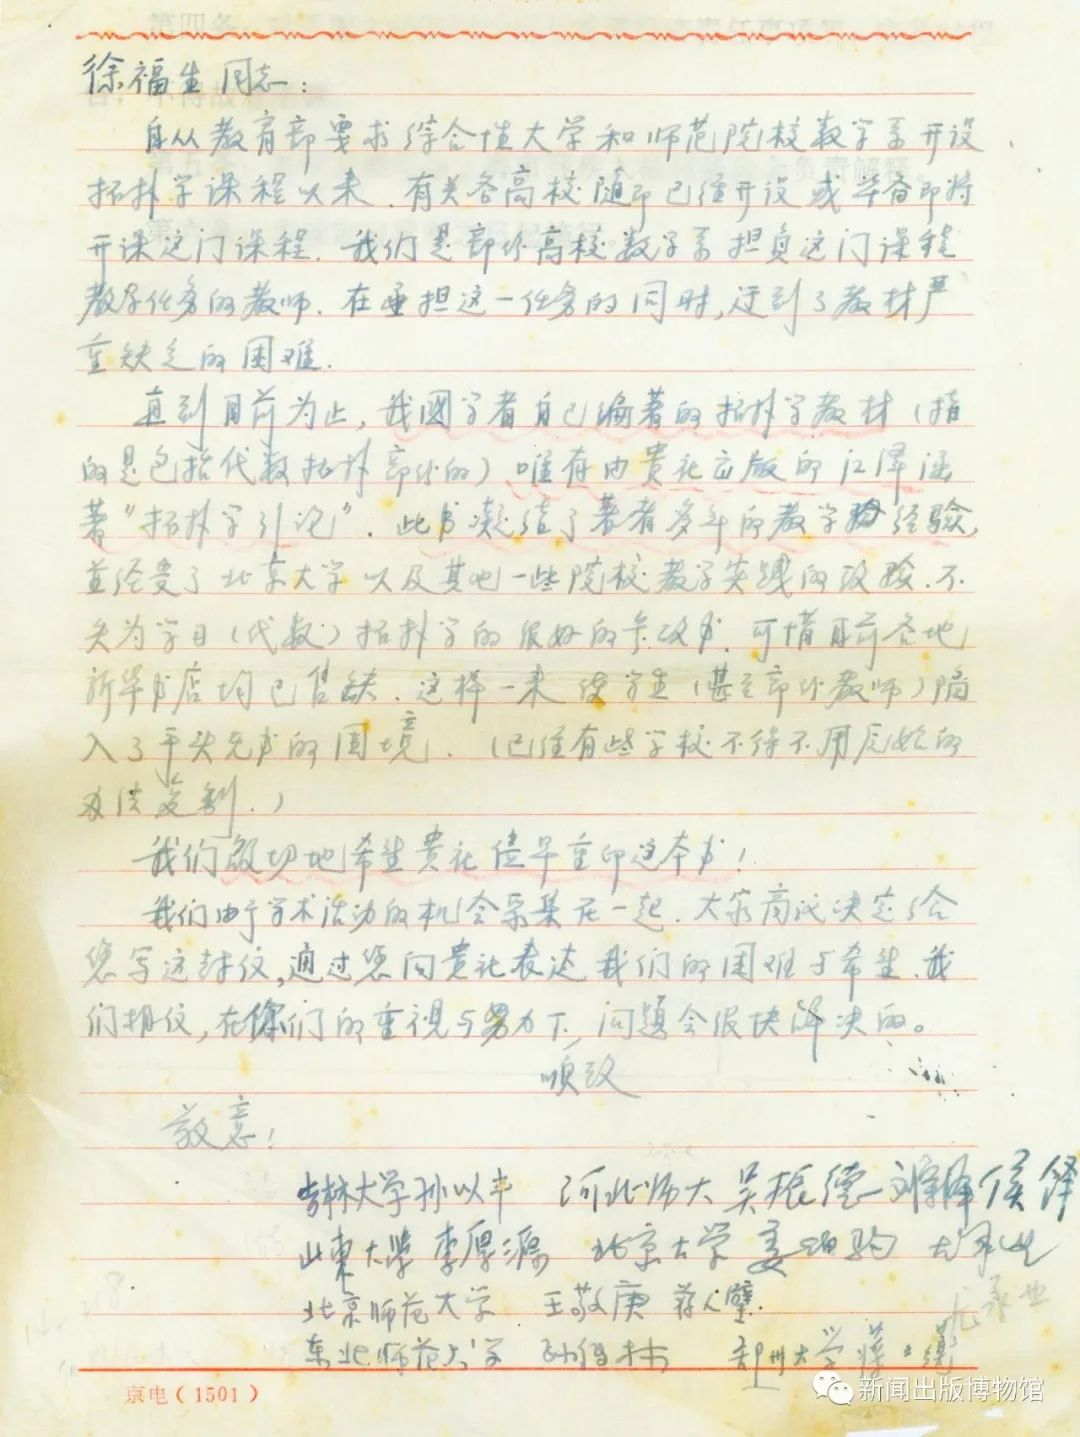 徐福生同志：
自从教育部要求综合性大学和师范院校数学系开设
拓扑学课程以来，有关各高校随即已经开设或准备即将
开课这门课程．我们是部份高校数学系担负这门课程
教学任务的教师．在承担这一任务的同时，迂到了教材严
重缺乏的困难．
直到目前为止，我国学者自己编著的拓扑学教材（指
的是包括代数拓扑部份的）唯有由贵社出版的江泽涵
著“拓扑学引论”．此书凝结了著者多年的教学经验，
并经受了北京大学以及其他一些院校教学实践的考验．不
失为学习（代数）拓扑学的很好的参考书．可惜目前各地
新华书店均已售缺．这样一来使学生（甚至部份教师）陷
入了手头无书的困境．（已经有些学校不得不用原始的
办法复制．）
我们殷切地希望贵社尽早重印这本书！
我们由于学术活动的机会采集在一起．大家商议决定给
您写这封信，通过您向贵社表达我们的困难与希望．我
们相信，在你们的重视与努力下，问题会很快解决的。
顺致
敬意！
吉林大学孙以丰 河北师大 吴振德 侯铎
山东大学 李厚源 北京大学 姜伯驹 尤承业
北京师范大学 王敬庚 蒋人璧
东北师范大学 郑州大学
尤承业
京电（1501）
新闻出版博物馆